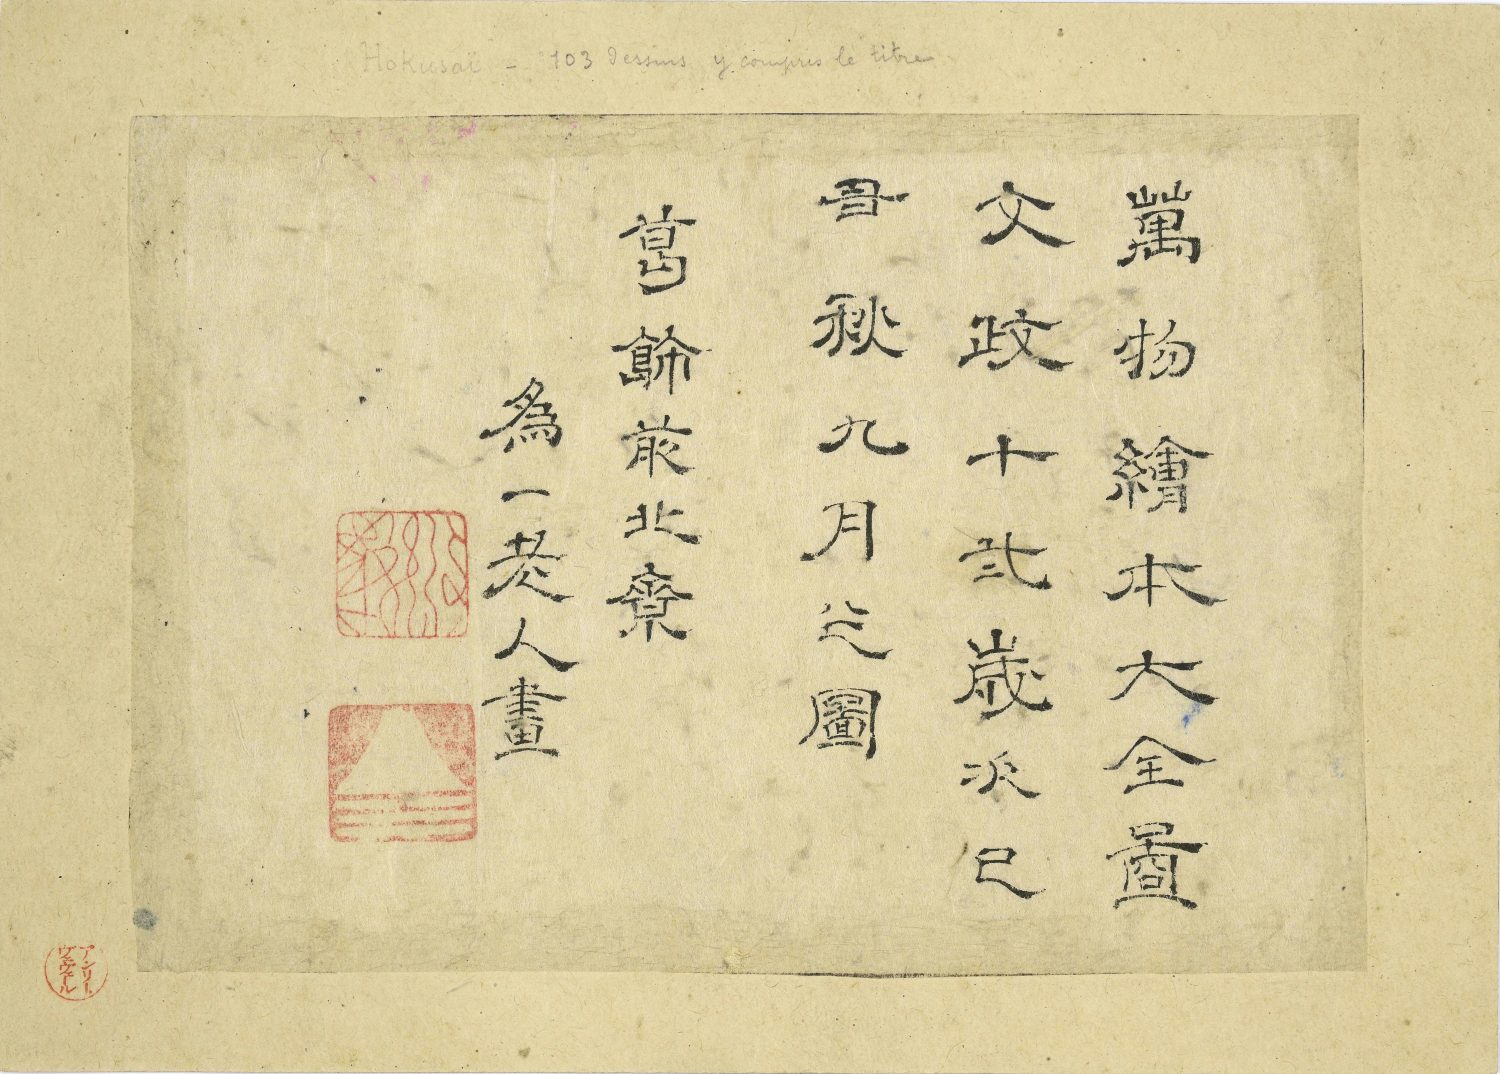 Hokusaï - 103 Dessins y compris le titre
萬物繪本大全圖
文政十弐歳次己
丑秋九月之圖
葛飾前北齋
為一老人畫
アンリー
ヴェヴェル